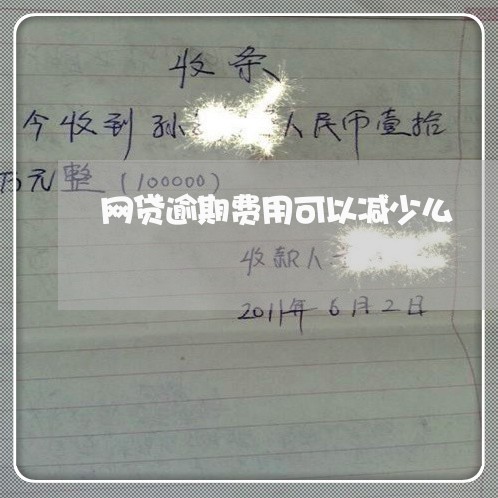 收条
今收到孙 人民币壹拾
万元整（100000）
网贷逾期费用可以减少么
收款人
2011年6月2日